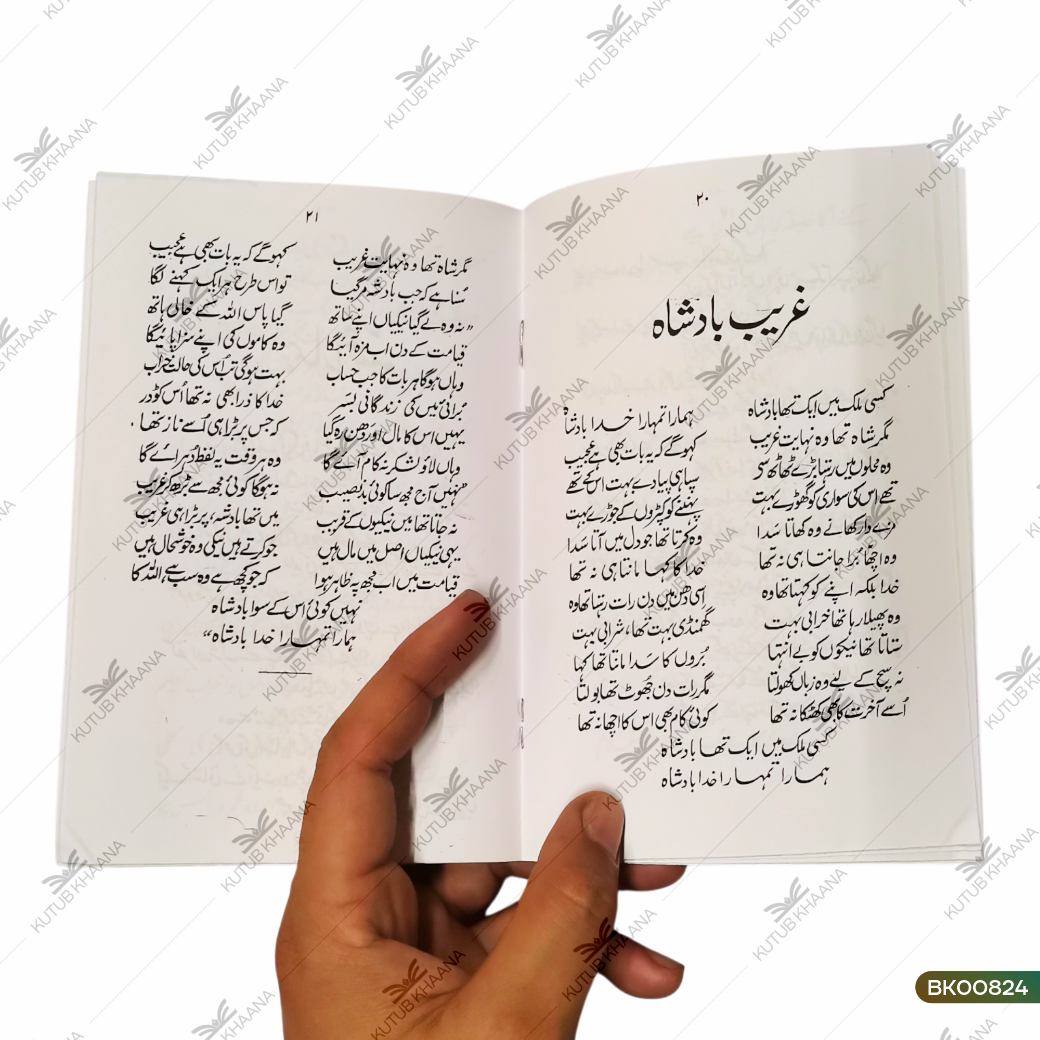 ۲۰
غریب بادشاہ
کسی ملک میں ایک تھا بادشاہ ہمارا تمہارا خدا بادشاہ
مگر شاہ تھا وہ نہایت غریب کہو گے کہ یہ بات بھی ہے عجیب
وہ محلوں میں رہتا بڑے ٹھاٹھ سے سپاہی پیادے بہت اس کے تھے
تھے اس کی سواری کو گھوڑے بہت پہننے کو کپڑوں کے جوڑے بہت
مزے دار کھانے وہ کھاتا سَدا وہ کرتا تھا جو دل میں آتا سَدا
وہ اچھا بُرا جانتا ہی نہ تھا خدا کا کہا مانتا ہی نہ تھا
خدا بلکہ اپنے کو کہتا تھا وہ اسی دُھن میں دن رات رہتا تھا وہ
وہ پھیلا رہا تھا خرابی بہت گھمنڈی بہت تھا، شرابی بہت
ستاتا تھا نیکوں کو بے انتہا بُروں کا سَدا مانتا تھا کہا
نہ سچ کے لیے وہ زباں کھولتا مگر رات دن جُھوٹ تھا بولتا
اُسے آخرت کا بھی کھٹکا نہ تھا کوئی کام بھی اس کا اچھا نہ تھا
کسی ملک میں ایک تھا بادشاہ
ہمارا تمہارا خدا بادشاہ
۲۱
مگر شاہ تھا وہ نہایت غریب کہو گے کہ یہ بات بھی ہے عجیب
سُنا ہے کہ جب بادشہ مر گیا تو اس طرح ہر ایک کہنے لگا
"نہ وہ لے گیا نیکیاں اپنے ساتھ گیا پاس اللہ کے خالی ہاتھ
قیامت کے دن اب مزہ آئیگا وہ کاموں کی اپنے سزا پائیگا
وہاں ہوگا ہر بات کا جب حساب بہت ہوگی تب اُس کی حالت خراب
بُرائی میں کی زندگانی بسَر خدا کا ذرا بھی نہ تھا اُس کو ڈر
یہیں اس کا مال اور دَھن رہ گیا کہ جس پر بڑا ہی اُسے ناز تھا
وہاں لاؤ لشکر نہ کام آئے گا وہ ہر وقت یہ لفظ دُہرائے گا
"نہیں آج مجھ سا کوئی بدنصیب نہ ہوگا کوئی مجھ سے بڑھ کر غریب
نہ جاتا تھا میں نیکیوں کے قریب میں تھا بادشہ، پر بڑا ہی غریب
یہی نیکیاں اصل میں مال ہیں جو کرتے ہیں نیکی وہ خوشحال ہیں
قیامت میں اب مجھ پہ ظاہر ہوا کہ جو کچھ ہے وہ سب ہے اللہ کا
نہیں کوئی اس کے سوا بادشاہ
ہمارا تمہارا خدا بادشاہ"
KUTUB KHAANA
BK00824